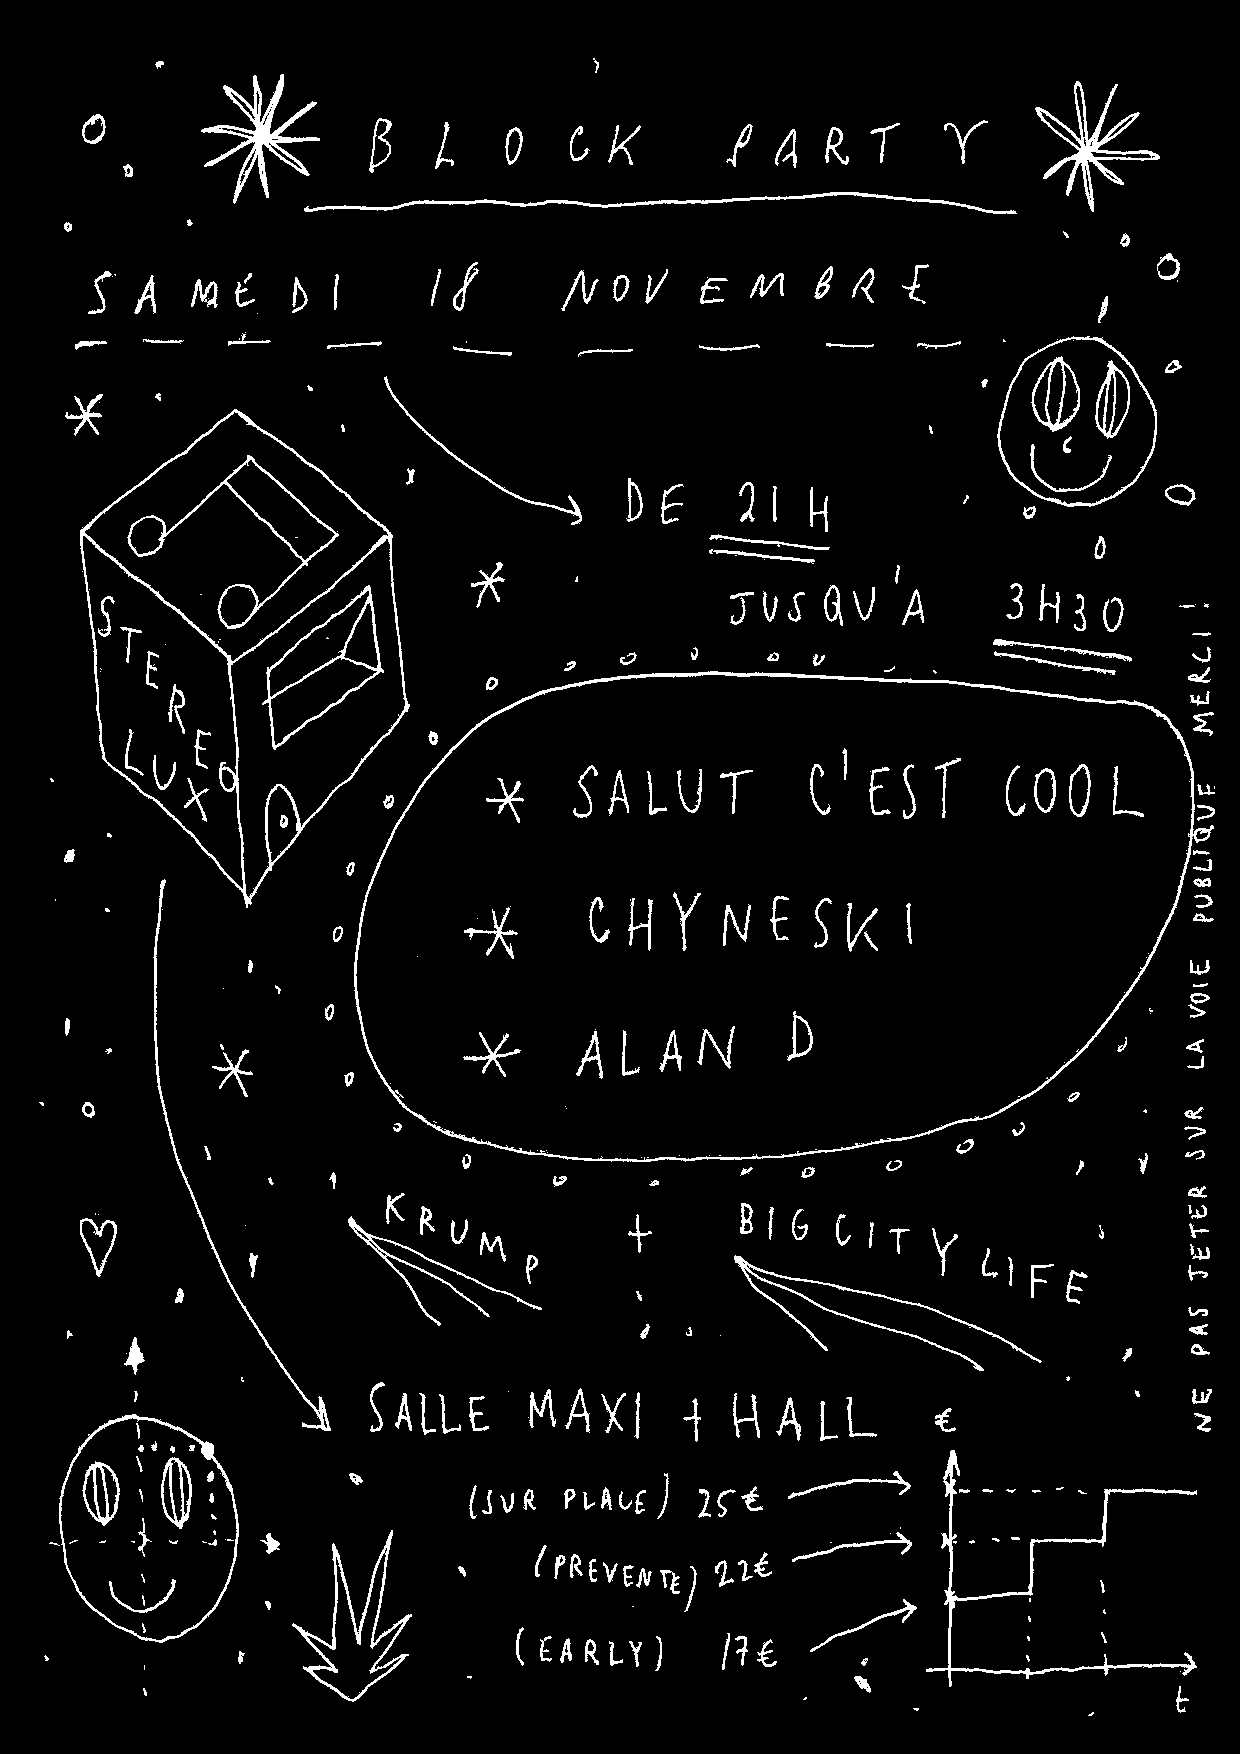 BLOCK PARTY
SAMEDI 18 NOVEMBRE
DE 21H
JUSQU'A 3H30
STEREO
LUX
* SALUT C'EST COOL
* CHYNESKI
* ALAN D
KRUMP + BIG CITY LIFE
SALLE MAXI + HALL
(SUR PLACE) 25€
(PREVENTE) 22€
(EARLY) 17€
€
t
NE PAS JETER SUR LA VOIE PUBLIQUE MERCI !